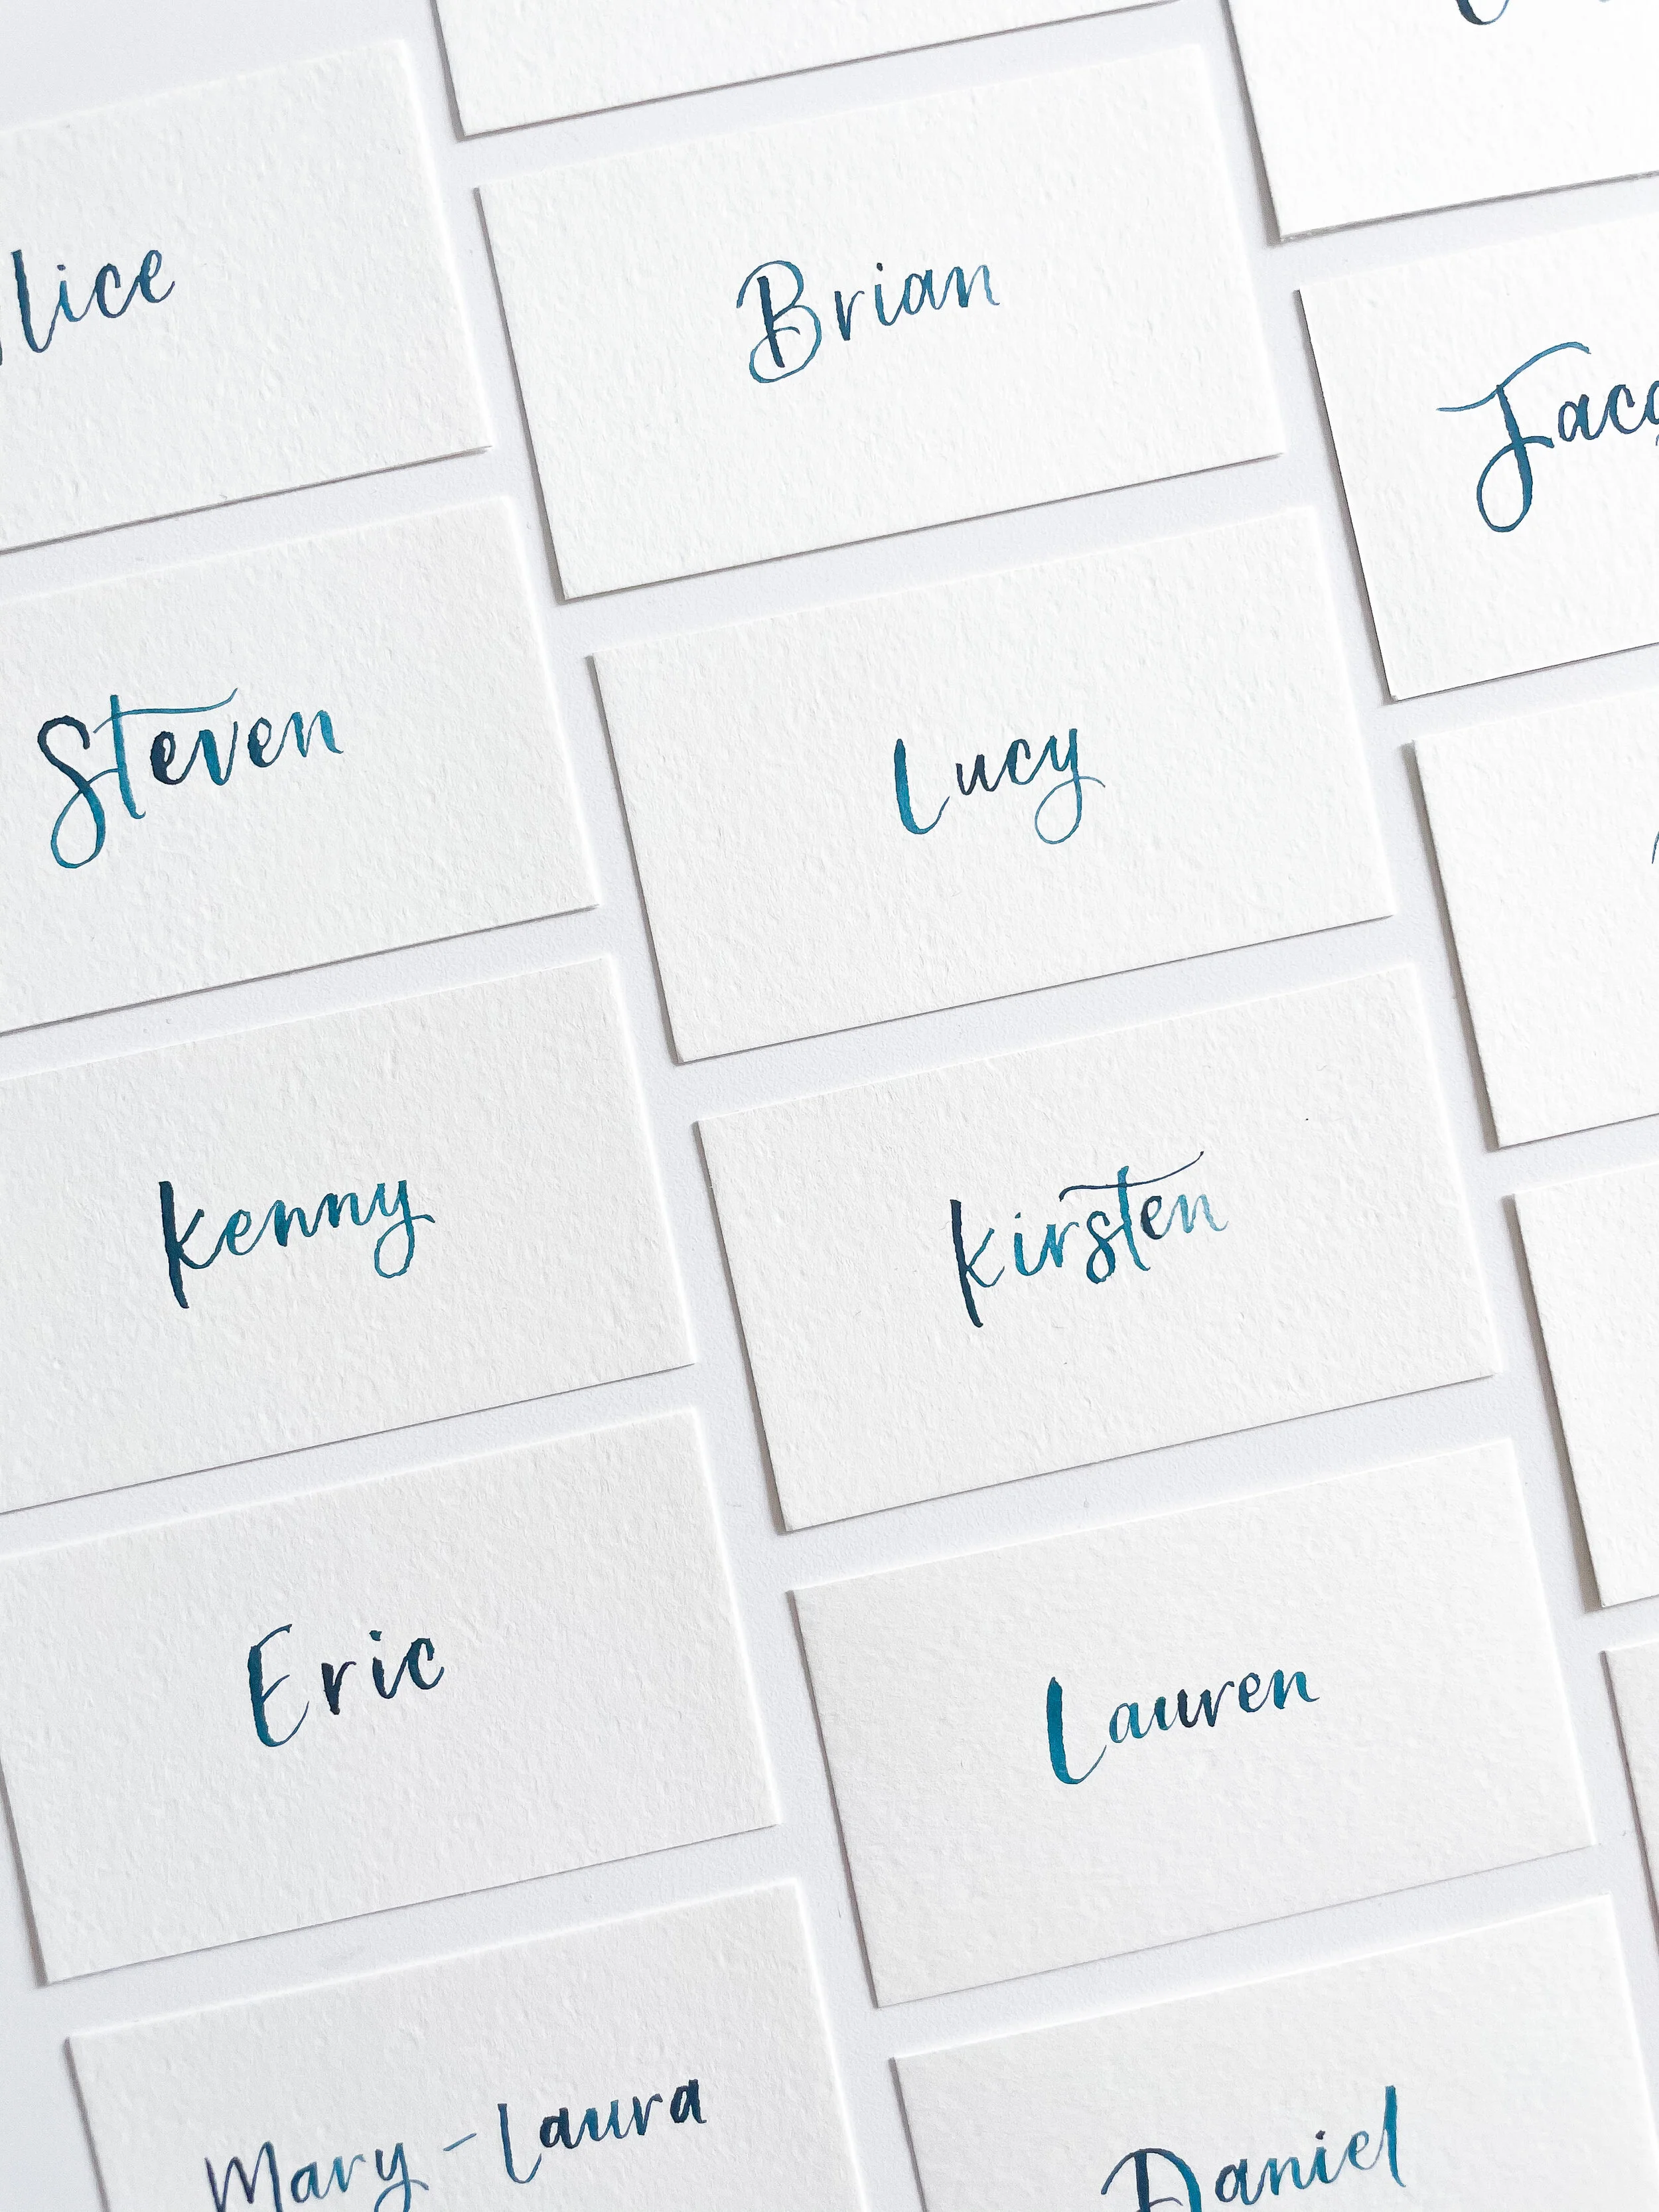 lice
Brian
Jacq
Steven
Lucy
Kenny
Kirsten
Eric
Lauren
Mary-Laura
Daniel